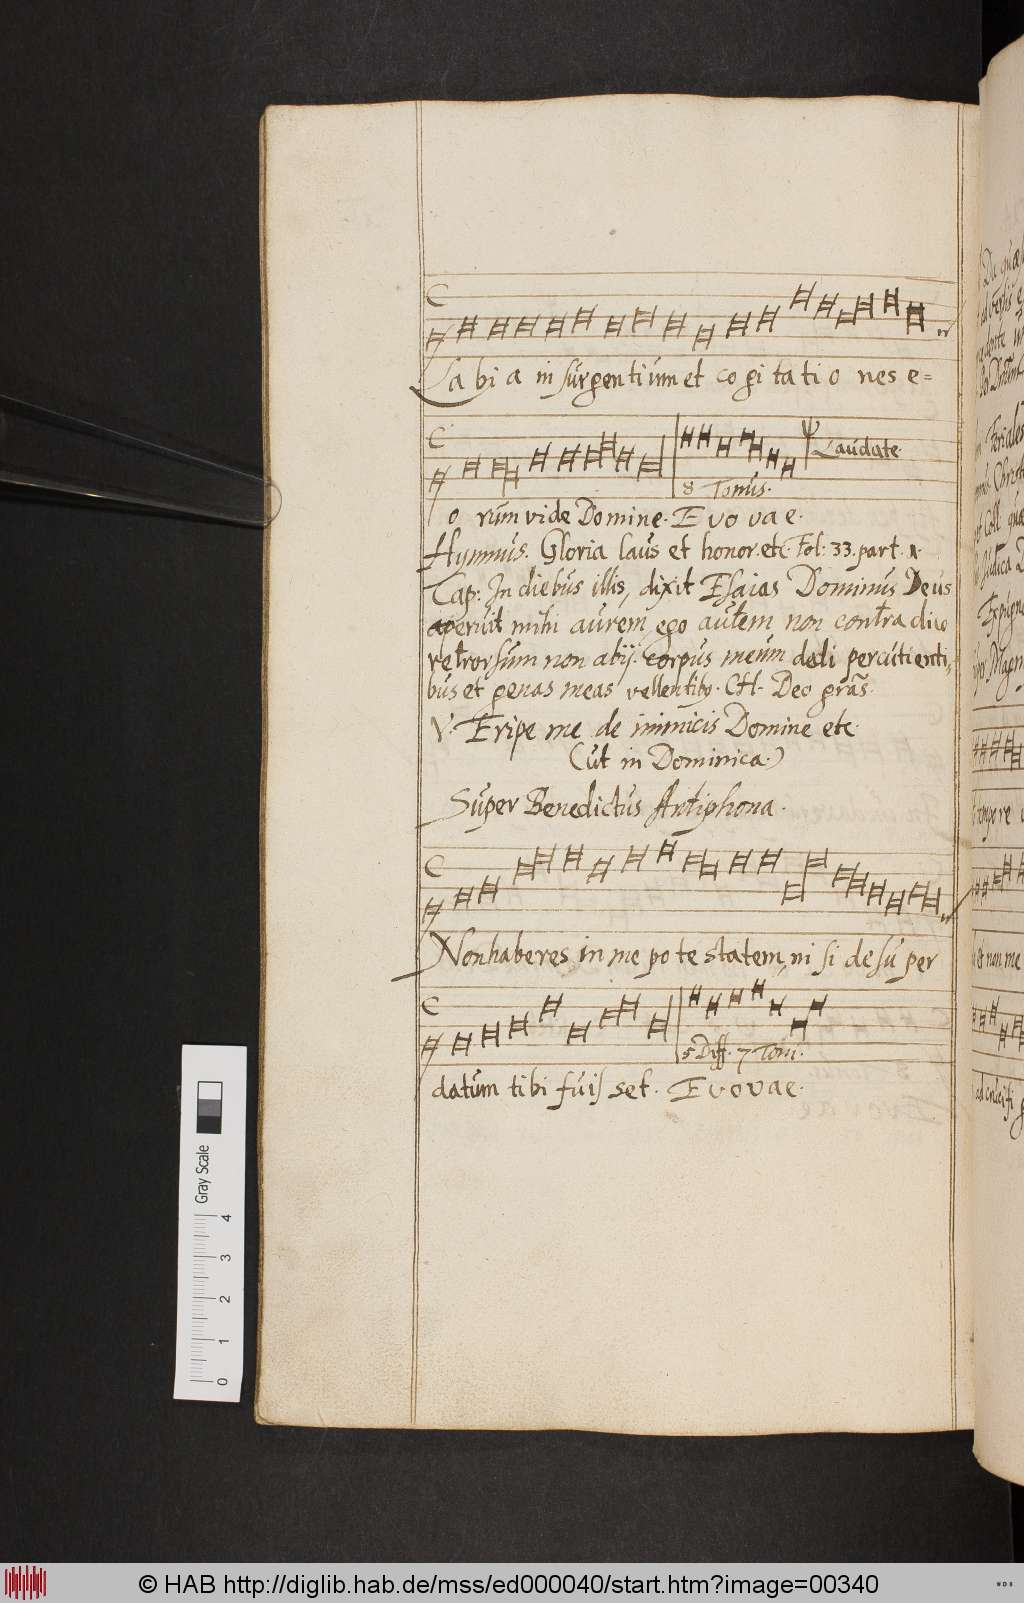 Labia insurgentium et cogitationes e=
8 Tonus.
Laudate
orum vide Domine. Evovae.
Hymnus. Gloria laus et honor. etc. Fol: 33. part. 1.
Cap: In diebus illis, dixit Esaias Dominus Deus
aperuit mihi aurem ego autem non contra dico
retrorsum non abij. Corpus meum dedi percutienti,
bus et genas meas vellentibs. CH. Deo gras.
V. Eripe me de inimicis Domine etc.
(ut in Dominica.)
Super Benedictus Antiphona.
Non haberes in me potestatem, nisi desuper
5 Diff. 7 Toni.
datum tibi fuisset. Evovae.
Gray Scale
0 1 2 3 4
© HAB http://diglib.hab.de/mss/ed000040/start.htm?image=00340